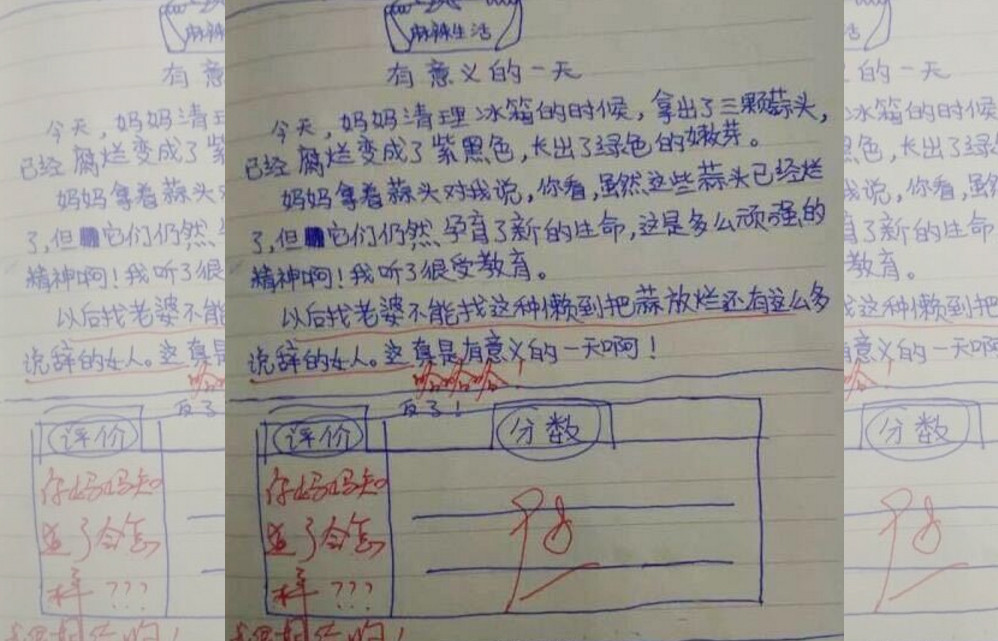 麻辣生活
有意义的一天
今天,妈妈清理冰箱的时候,拿出了三颗蒜头,
已经腐烂变成了紫黑色,长出了绿色的嫩芽。
妈妈拿着蒜头对我说,你看,虽然这些蒜头已经烂
了,但它们仍然孕育了新的生命,这是多么顽强的
精神啊!我听了很受教育。
以后找老婆不能找这种懒到把蒜放烂还有这么多
说辞的女人。这真是有意义的一天啊!
哈哈哈!
反了!
评价
分数
你妈妈知
道了会怎
样???